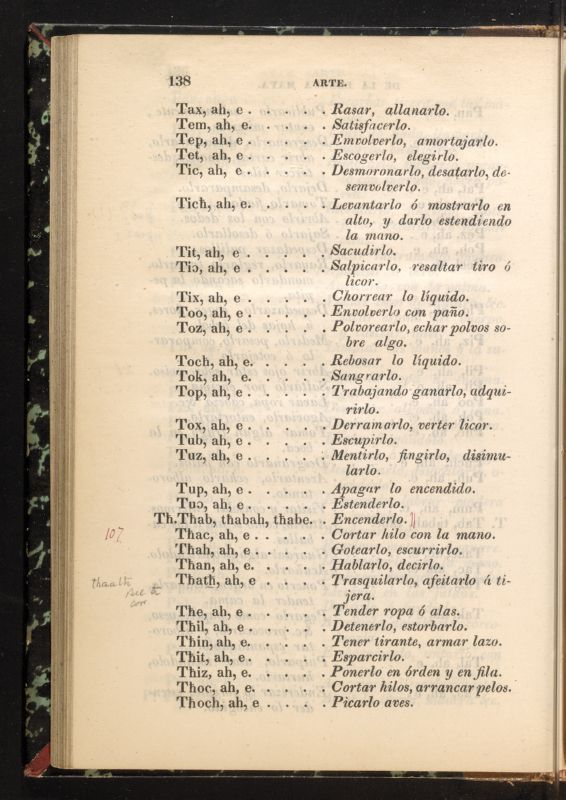 138 ARTE.
Tax, ah, e . . . . . . Rasar, allanarlo.
Tem, ah, e. . . . . . Satisfacerlo.
Tep, ah, e . . . . . . Emvolverlo, amortajarlo.
Tet, ah, e . . . . . . Escogerlo, elegirlo.
Tic, ah, e. . . . . . Desmoronarlo, desatarlo, de-
semvolverlo.
Tich, ah, e. . . . . . Levantarlo ó mostrarlo en
alto, y darlo estendiendo
la mano.
Tit, ah, e . . . . . Sacudirlo.
Tiɔ, ah, e . . . . . Salpicarlo, resaltar tiro ó
licor.
Tix, ah, e . . . . . Chorrear lo líquido.
Too, ah, e . . . . . Envolverlo con paño.
Toz, ah, e . . . . . Polvorearlo, echar polvos so-
bre algo.
Toch, ah, e. . . . . Rebosar lo líquido.
Tok, ah, e. . . . . Sangrarlo.
Top, ah, e . . . . . Trabajando ganarlo, adqui-
rirlo.
Tox, ah, e . . . . . Derramarlo, verter licor.
Tub, ah, e . . . . . Escupirlo.
Tuz, ah, e . . . . . Mentirlo, fingirlo, disimu-
larlo.
Tup, ah, e . . . . . Apagar lo encendido.
Tuɔ, ah, e . . . . . Estenderlo.
Th. Thab, thabah, thabe. . Encenderlo.
107. Thac, ah, e . . . . . Cortar hilo con la mano.
Thah, ah, e . . . . . Gotearlo, escurrirlo.
Than, ah, e. . . . . Hablarlo, decirlo.
thaalh Thath, ah, e . . . . Trasquilarlo, afeitarlo á ti-
jera.
The, ah, e . . . . . Tender ropa ó alas.
Thil, ah, e . . . . . Detenerlo, estorbarlo.
Thin, ah, e. . . . . Tener tirante, armar lazo.
Thit, ah, e . . . . . Esparcirlo.
Thiz, ah, e. . . . . Ponerlo en órden y en fila.
Thoc, ah, e. . . . . Cortar hilos, arrancar pelos.
Thoch, ah, e . . . . Picarlo aves.